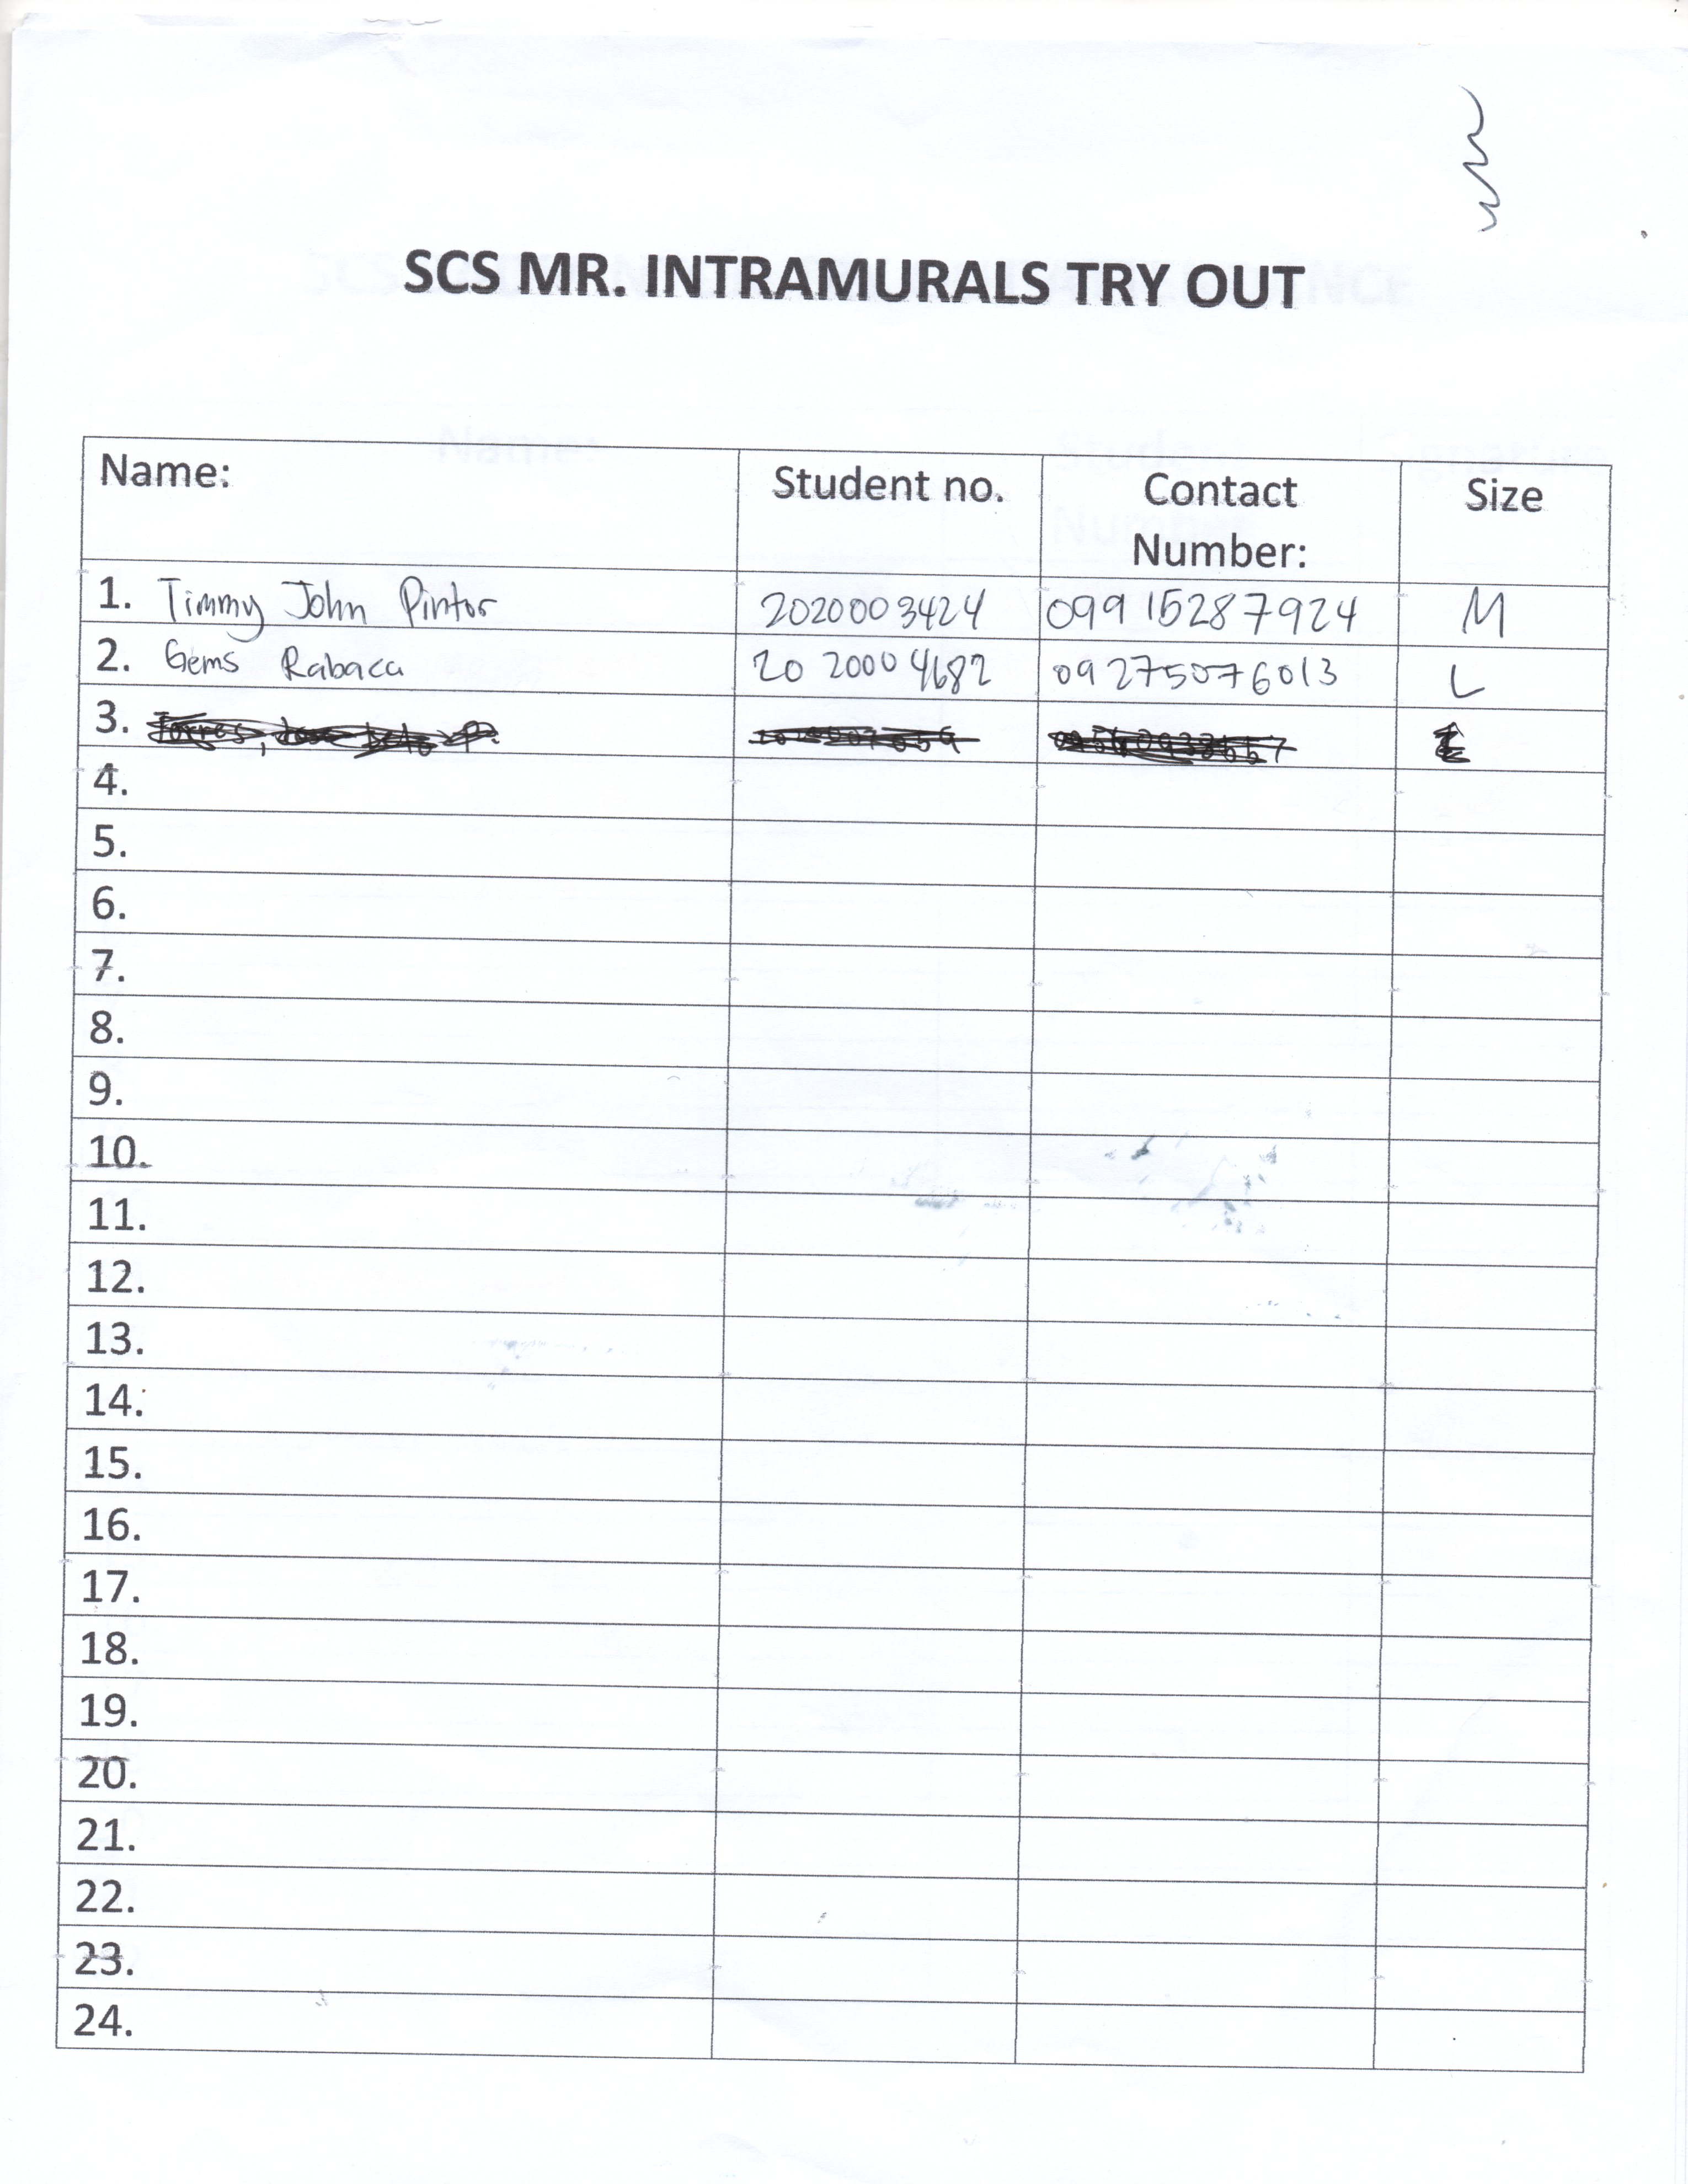 SCS MR. INTRAMURALS TRY OUT
Name: Student no. Contact Number: Size
1. Timmy John Pintor 2020003424 09915287924 M
2. Gems Rabaca 20 20004682 09275076013 L
3.
4.
5.
6.
7.
8.
9.
10.
11.
12.
13.
14.
15.
16.
17.
18.
19.
20.
21.
22.
23.
24.